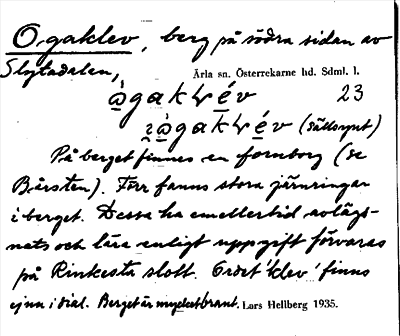 Ogaklev, berg på södra sidan av
Slytadalen,
Ärla sn. Österrekarne hd. Sdml. l.
23
(sällsynt)
På berget finnes en fornborg (se
Bårsten). Förr funns stora järnringar
i berget. Dessa ha emellertid avlägs-
nats och lära enligt uppgift förvaras
på Rinkesta slott. Ordet 'klev' finns
ej nu i dial. Berget är mycket brant. Lars Hellberg 1935.